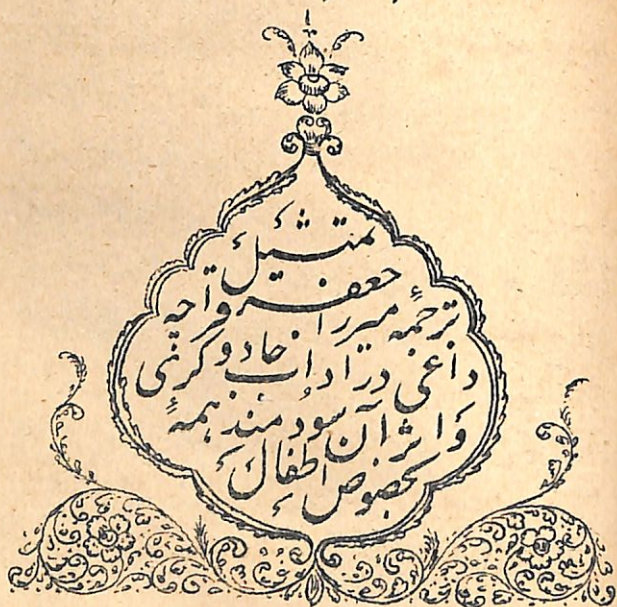 تمثیل
ترجمهٔ میرزا جعفر قراجه
داغی در اداب جادو گری
و اثر آن سودمند همهٔ
بخصوص اطفال